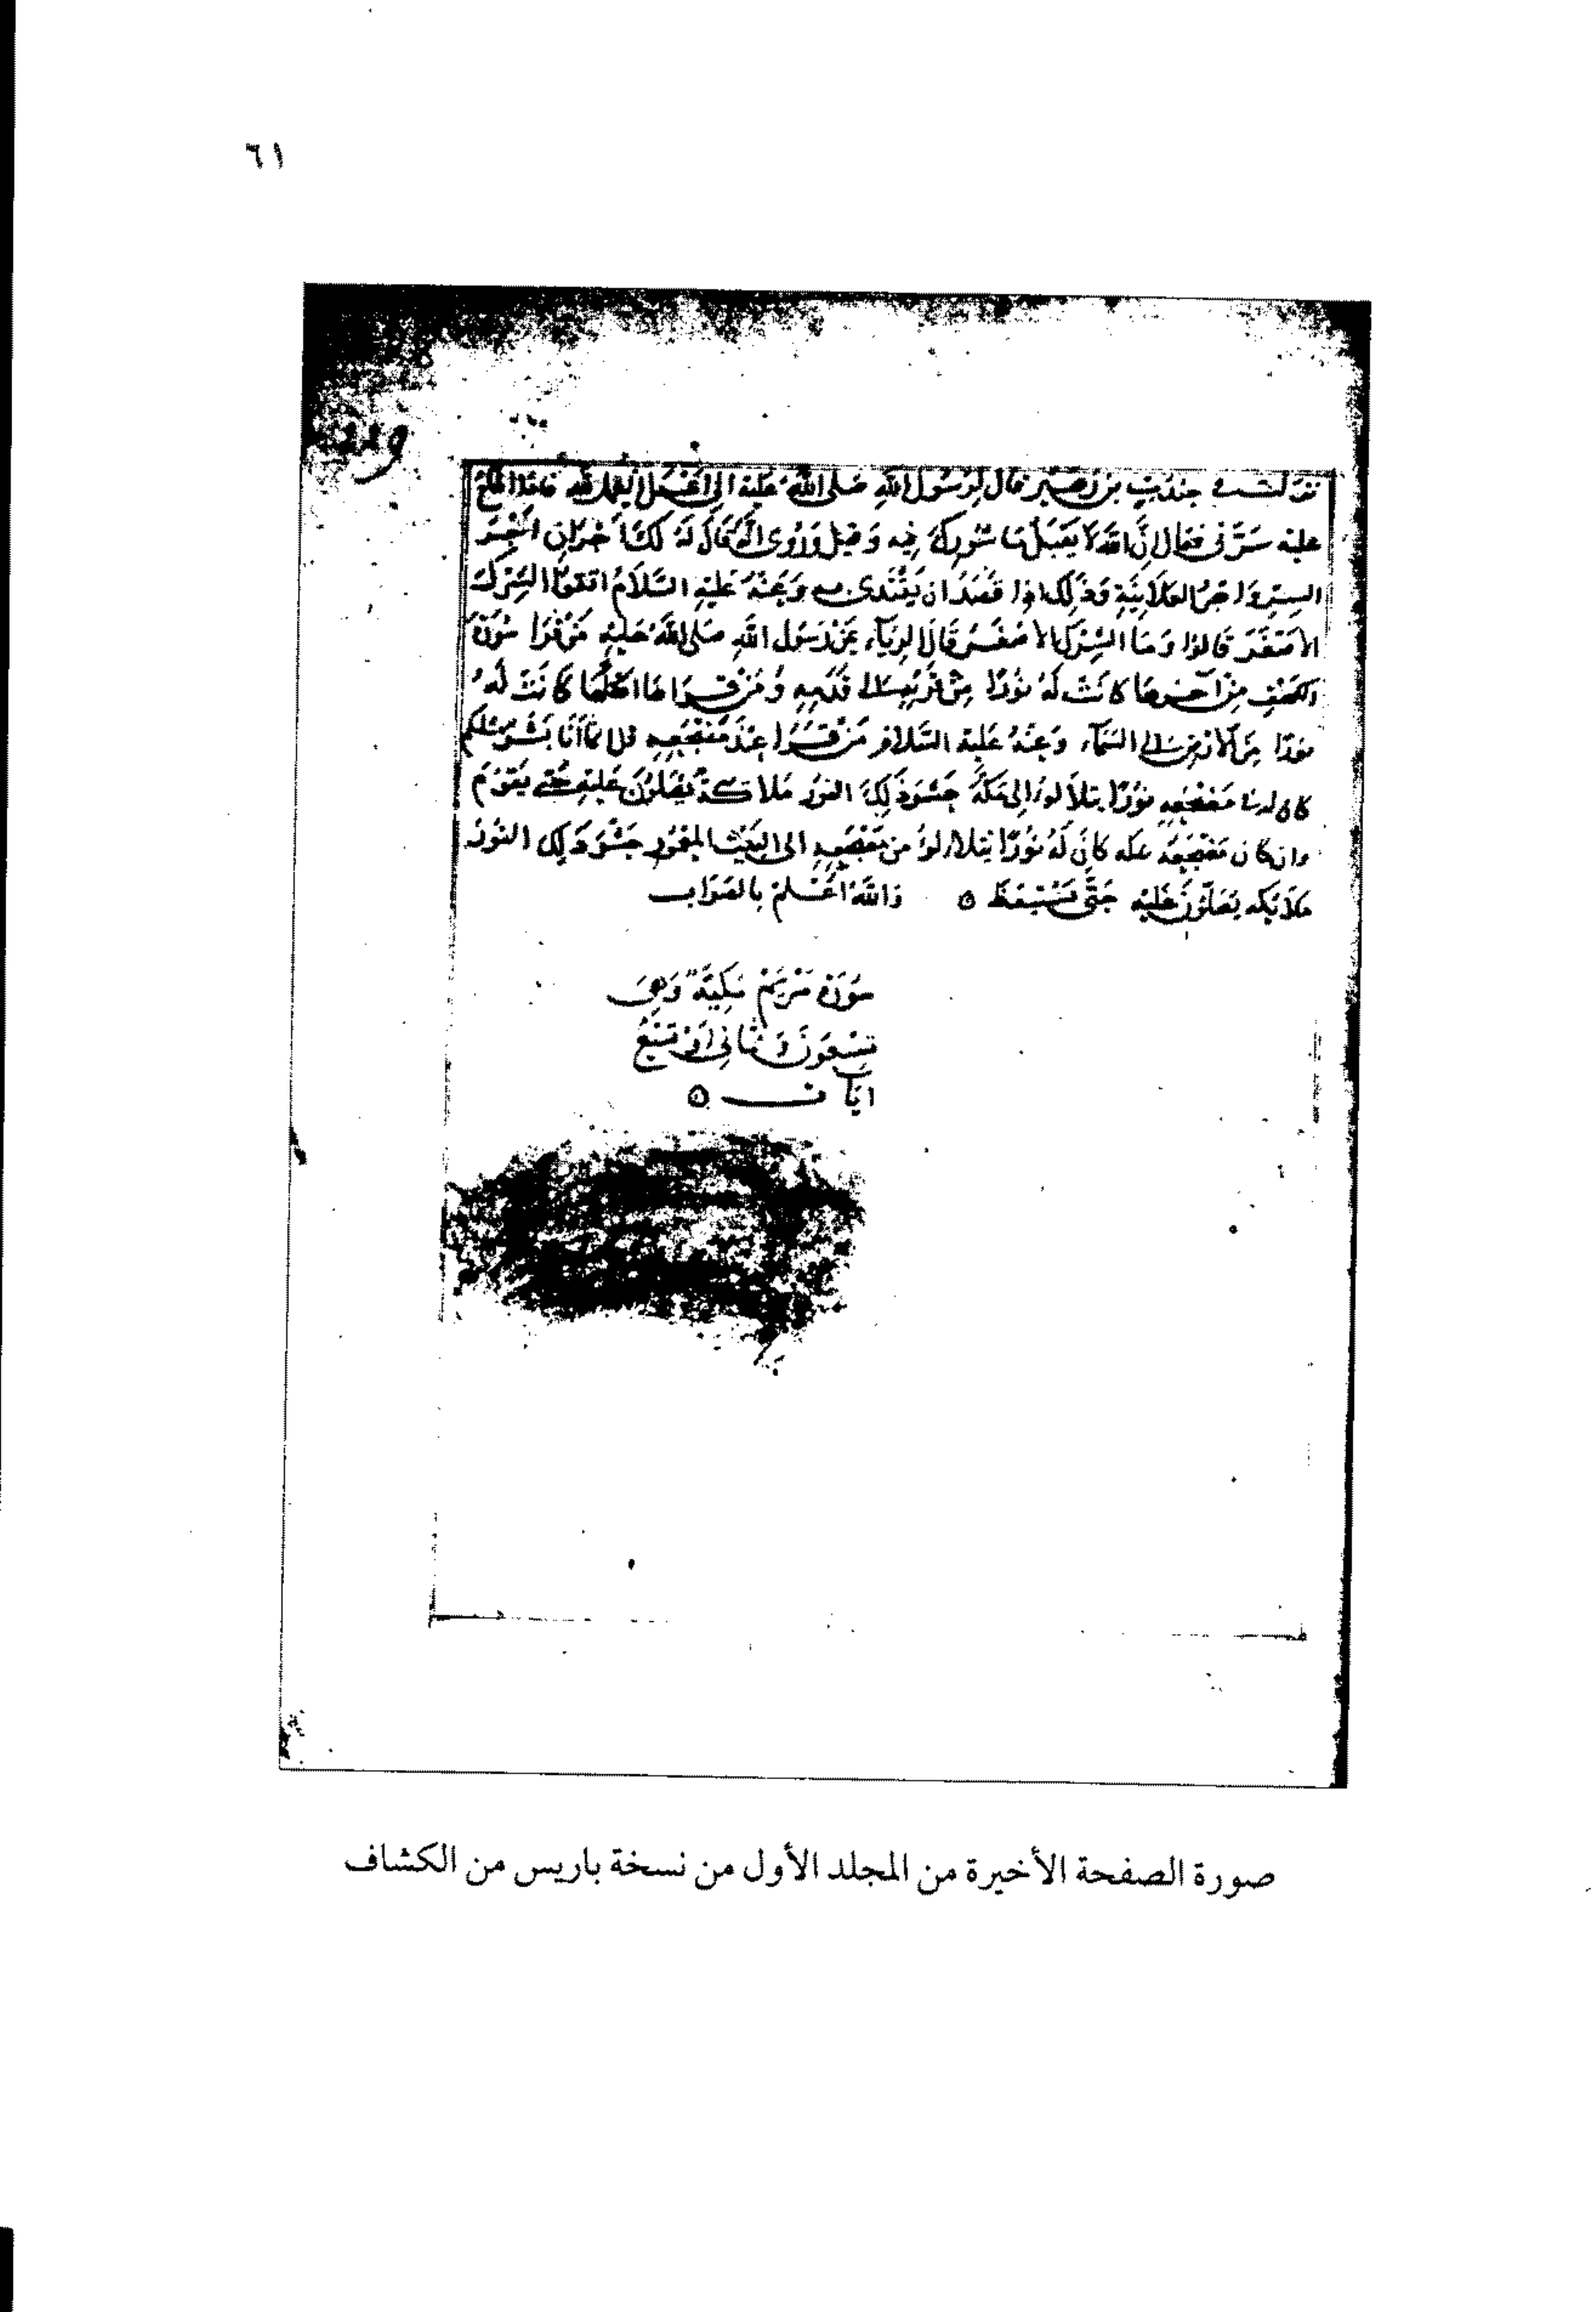 ٦١
جندب بن زهير قال لرسول الله صلى الله عليه اني اعمل العمل لله فاذا اطلع
عليه سرني فقال ان الله لا يقبل ما شورك فيه وقيل وروى انه قال له لك اجران اجر
السر واجر العلانية وذلك اذا قصد ان يقتدى به وعنه عليه السلام اتقوا الشرك
الاصغر قالوا وما الشرك الاصغر قال الرياء عن رسول الله صلى الله عليه من قرا سورة
الكهف من آخرها كانت له نورا من قرنه الى قدمه ومن قراها كلها كانت له
نورا من الارض الى السماء وعنه عليه السلام من قرا عند مضجعه قل انما انا بشر مثلكم
كان له من مضجعه نورا يتلالؤ الى مكة حشو ذلك النور ملائكة يصلون عليه حتى يقوم
وان كان مضجعه بمكه كان له نورا يتلالؤ من مضجعه الى البيت المعمور حشو ذلك النور
ملائكه يصلون عليه حتى يستيقظ ه والله اعلم بالصواب
سورة مريم مكية وهي
تسعون وثماني او تسع
ايات ه
صورة الصفحة الأخيرة من المجلد الأول من نسخة باريس من الكشاف